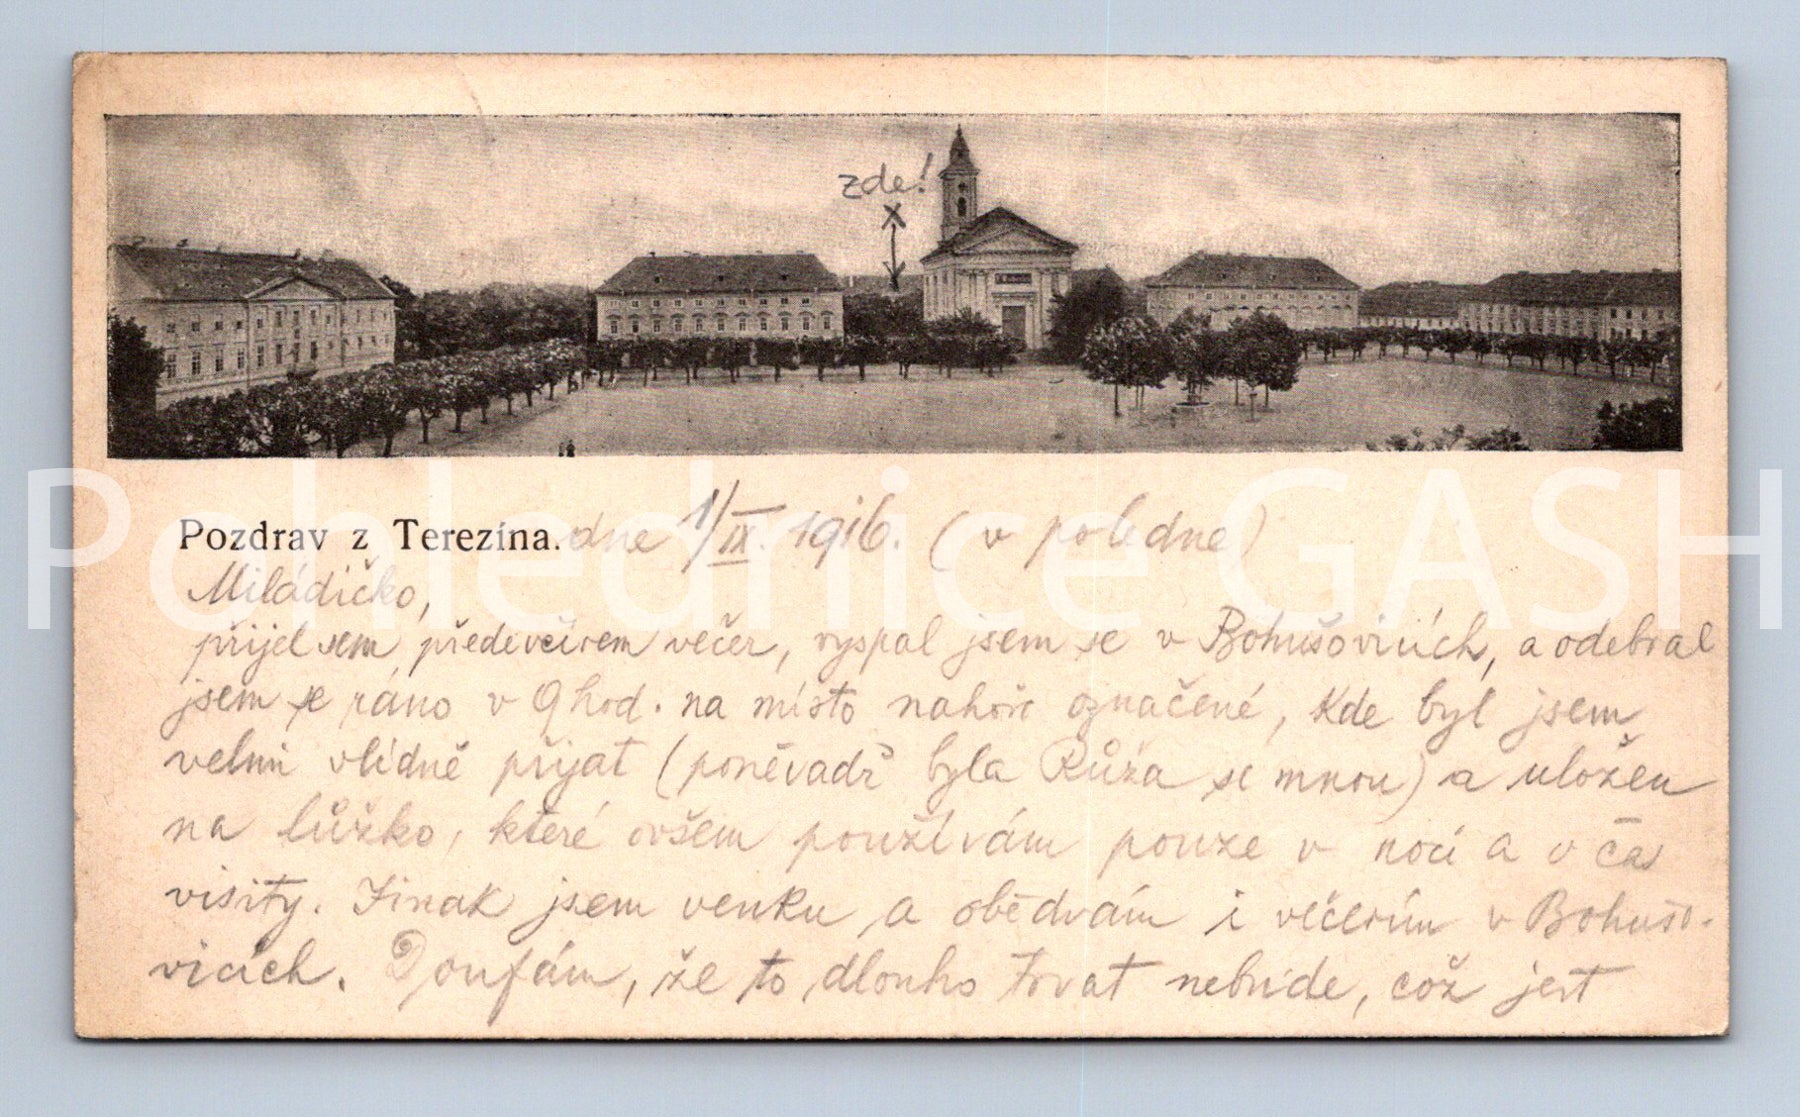 zde!
Pozdrav z Terezína. dne 1/IX. 1916. (v poledne)
Miládíčko,
přijel jsem předevčírem večer, vyspal jsem se v Bohušovicích, a odebral
jsem se ráno v 9 hod. na místo nahoře označené, kde byl jsem
velmi vlídně přijat (poněvadž byla Růža se mnou) a uložen
na lůžko, které ovšem používám pouze v noci a v čas
visity. Jinak jsem venku a obědvám i večeřím v Bohušo-
vicích. Doufám, že to dlouho trvat nebude, což jest
Pohlednice GASH